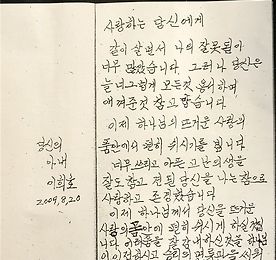 당신의
아내
이희호
2009. 8. 20
사랑하는 당신에게
같이 살면서 나의 잘못됨이
너무 많았습니다. 그러나 당신은
늘 너그럽게 모든것 용서하며
애껴준것 참 고맙습니다.
이제 하나님의 뜨거운 사랑의
품안에서 편히 쉬시기를 빕니다.
너무 쓰리고 아픈 고난의 생을
잘도 참고 견딘 당신을 나는 참으로
사랑하고 존경했습니다.
이제 하나님께서 당신을 뜨거운
사랑의 품안에 편히 쉬게 하실것입
니다. 어려움을 잘 감내하신것을 하나님
이 인정하시고 승리의 면류관을 씌워